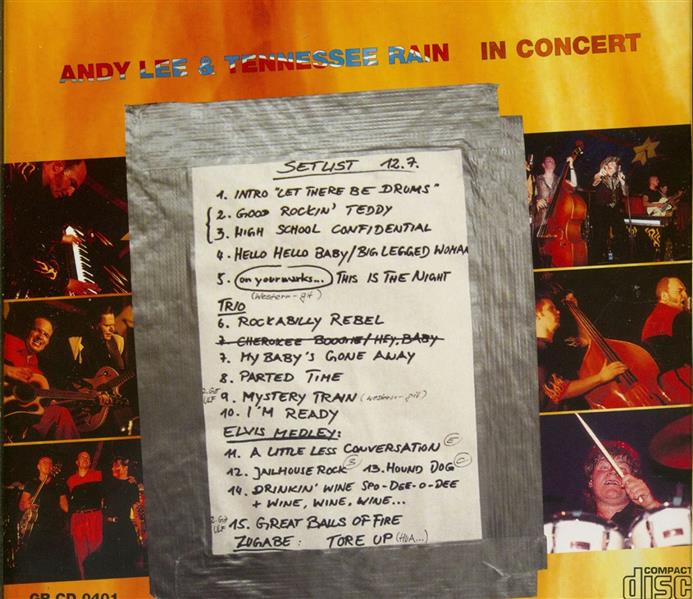 ANDY LEE & TENNESSEE RAIN IN CONCERT
SETLIST 12.7.
1. INTRO "LET THERE BE DRUMS"
2. GOOD ROCKIN' TEDDY
3. HIGH SCHOOL CONFIDENTIAL
4. HELLO HELLO BABY/BIG LEGGED WOMAN
5. on your marks... THIS IS THE NIGHT
(western-git)
TRIO
6. ROCKABILLY REBEL
7. CHEROKEE BOOGIE/HEY, BABY
7. MY BABY'S GONE AWAY
8. PARTED TIME
2. Git ULF 9. MYSTERY TRAIN (western-git)
10. I'M READY
ELVIS MEDLEY:
11. A LITTLE LESS CONVERSATION E
12. JAILHOUSE ROCK 13. HOUND DOG C
14. DRINKIN' WINE SPO-DEE-O-DEE
+ WINE, WINE, WINE...
2. Git ULF 15. GREAT BALLS OF FIRE
ZUGABE: TORE UP
GR CD 0401
COMPACT
disc